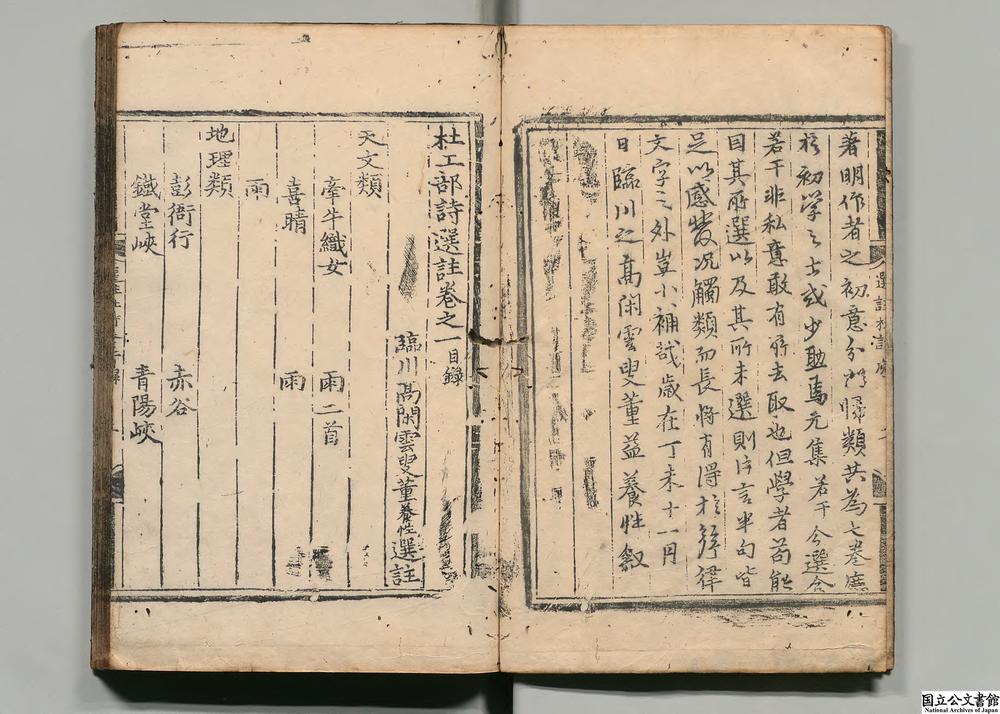 著明作者之初意分門隸類共為七卷庶
於初學之士或少助焉元集若干今選合
若干非私意敢有所去取也但學者苟能
因其所選以及其所未選則片言半句皆
足以感發況觸類而長將有得於聲律
文字之外豈小補哉歲在丁未十一月
日臨川之高閑雲叟董益養性叙
杜工部詩選註卷之一目錄
臨川高閑雲叟董養性選註
天文類
牽牛織女 雨二首
喜晴 雨
雨
地理類
彭衙行 赤谷
鐵堂峽 青陽峽
国立公文書館
National Archives of Japan